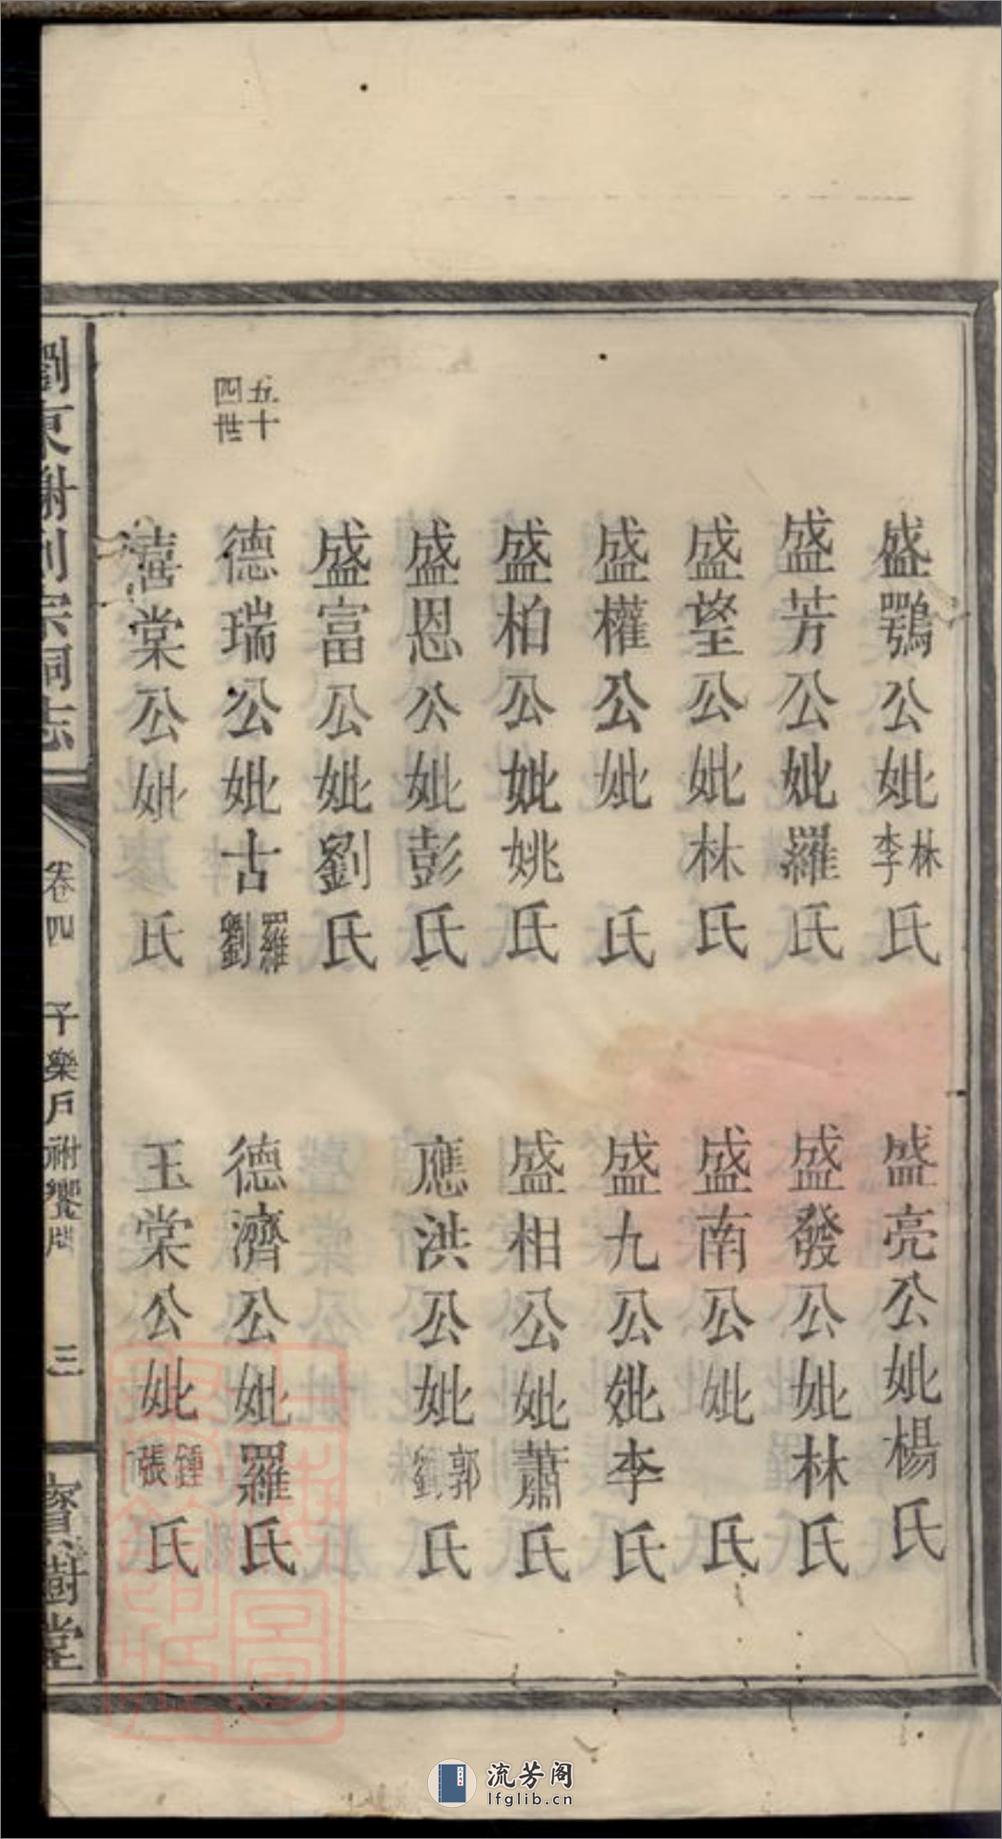 盛鶚公妣林李氏
盛亮公妣楊氏
盛芳公妣羅氏
盛發公妣林氏
盛望公妣林氏
盛南公妣氏
盛權公妣氏
盛九公妣李氏
盛柏公妣姚氏
盛相公妣蕭氏
盛恩公妣彭氏
應洪公妣郭劉氏
盛富公妣劉氏
五十四世
德瑞公妣古羅劉
德濟公妣羅氏
禧棠公妣氏
玉棠公妣鍾張氏
瀏東謝列宗祠志
卷四
子樂戶祔饗
三
寶樹堂
流芳阁
lfglib.cn